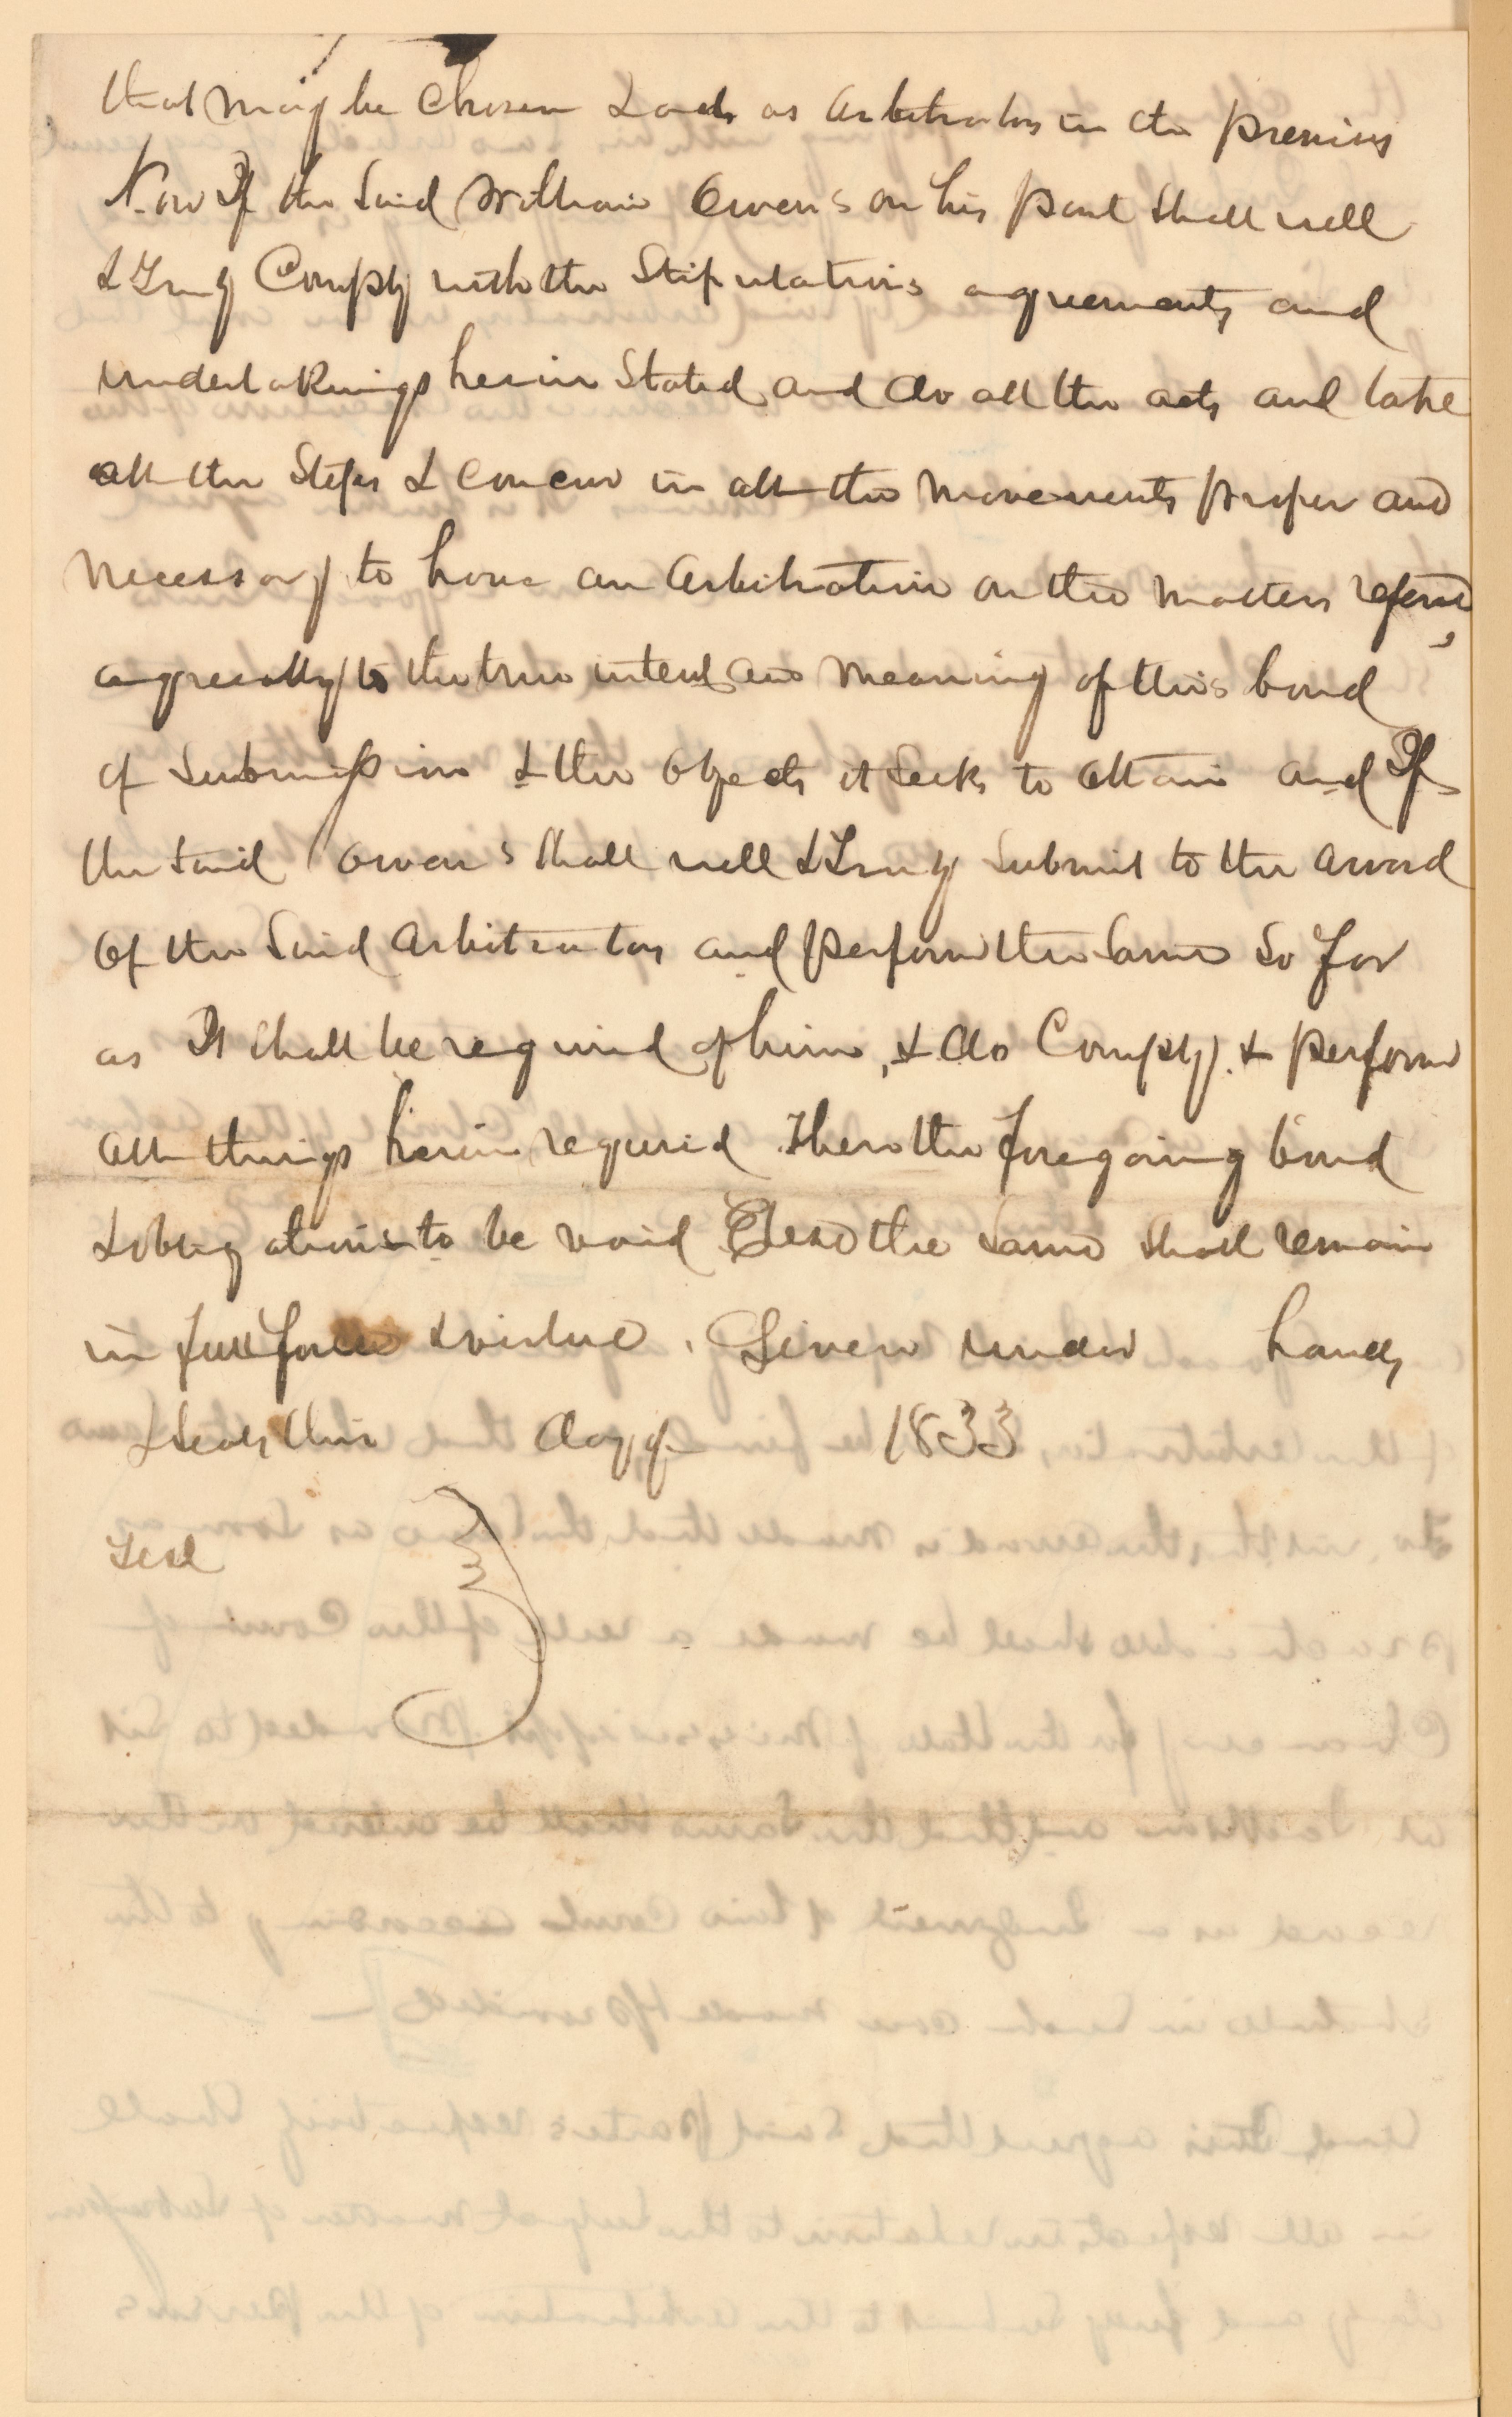 that may be Chosen & act as arbitrators in the premises
Now If the Said William Owens on his part Shall well
& Truly Comply with the Stipulations agreements and
undertakings herein Stated and do all the acts and take
all the Steps & Concur in all the movements proper and
necessary to have an arbitration on the matters refered,
agreeably to the true intent and meaning of this bond
of Submission & the objects it Seeks to attain and If
the Said Owens Shall well & Truly Submit to the award
of the Said arbitrators and perform the Same So far
as It Shall be required of him, & do Comply & perform
all things herein required Then the foregoing bond
& obligations to be void Else the Same Shall remain
in full force & virtue. Given under hands
& Seals this day of 1833
Test